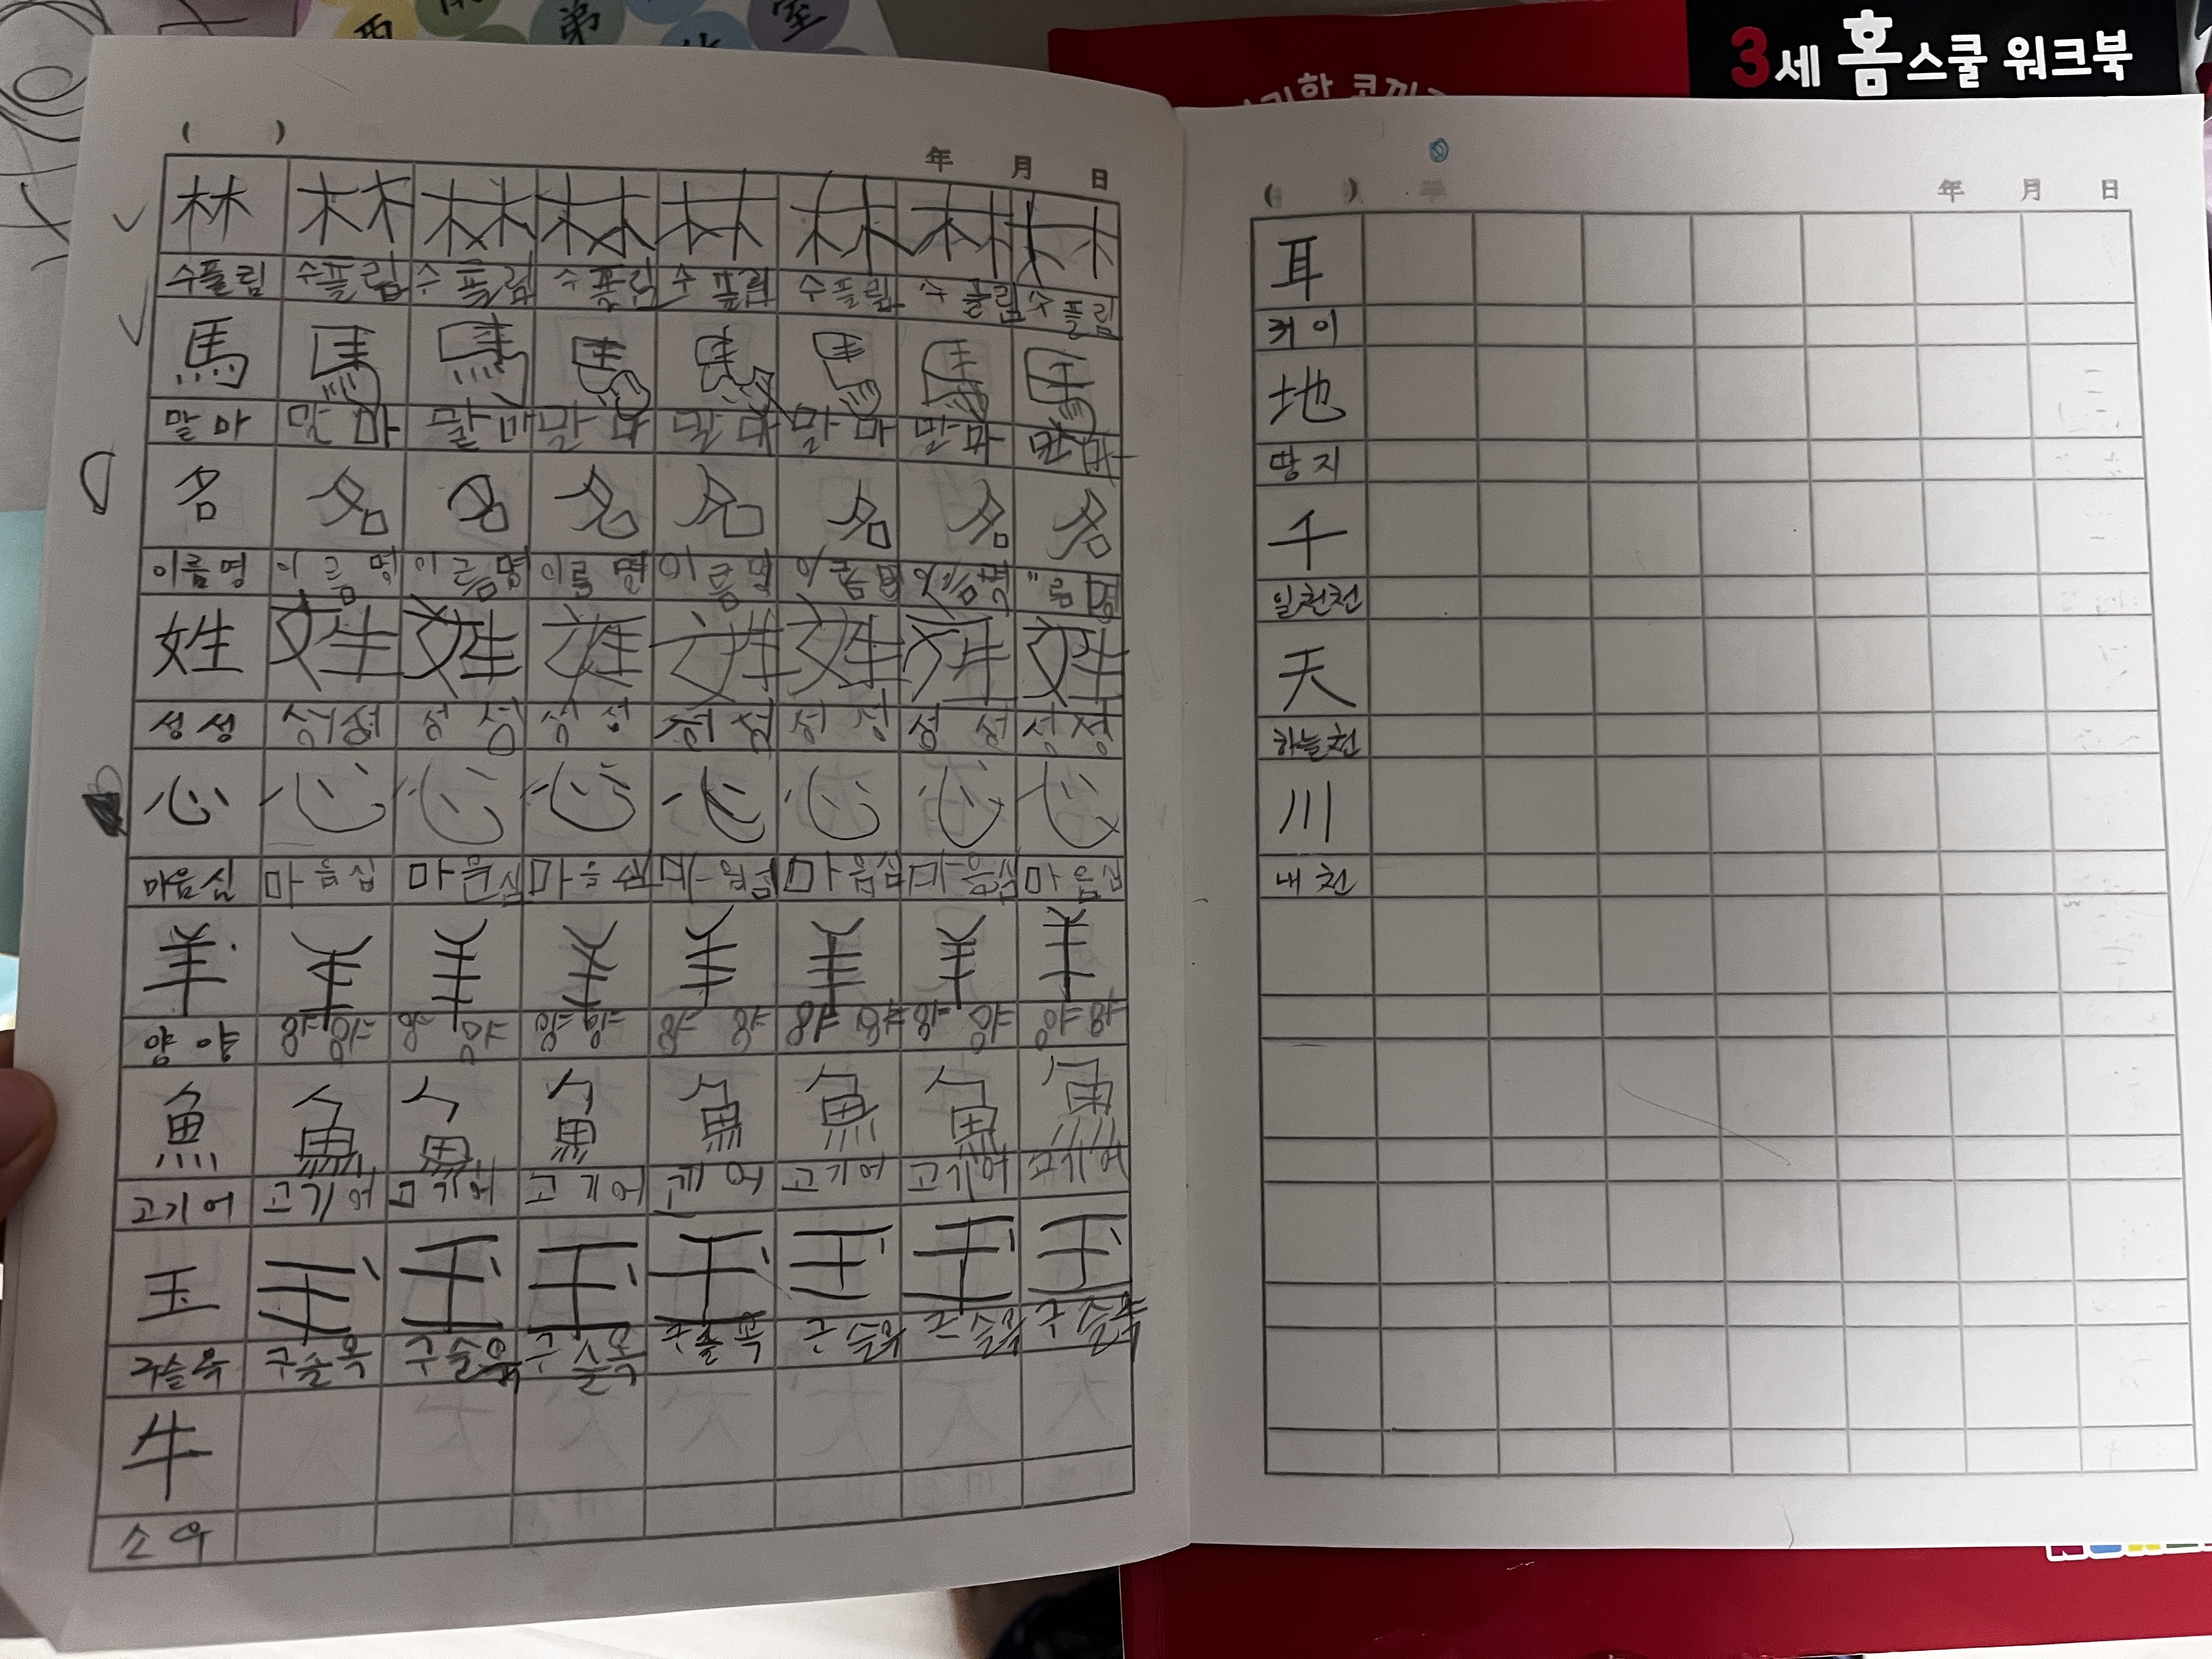 弟 室
3세 홈스쿨 워크북
( ) 年 月 日
林 林 林 林 林 林 林 林
수플림 수플림 수플림 수플림 수플림 수플림 수플림 수플림
馬 馬 馬 馬 馬 馬 馬 馬
말마 말마 말마 말마 말마 말마
名 名 名 名 名 名 名 名
이름명 이름명 이름명 이름명 이름명
姓 姓 姓 姓 姓 姓 姓 姓
성성 성성 성성 성성 성성
心 心 心 心 心 心 心 心
마음심 마음심 마음심
羊 羊 羊 羊 羊 羊 羊 羊
양양 양양 양양 양양 양양 양양 양양 양양
魚 魚 魚 魚 魚 魚 魚 魚
고기어 고기어 고기어 고기어 고기어 고기어 고기어 고기어
玉 玉 玉 玉 玉 玉 玉 玉
구슬옥 구슬옥 구슬옥 구슬옥 구슬옥 구슬옥 구슬옥 구슬옥
牛
소우
( ) 年 月 日
耳
귀이
地
땅지
千
일천천
天
하늘천
川
내천